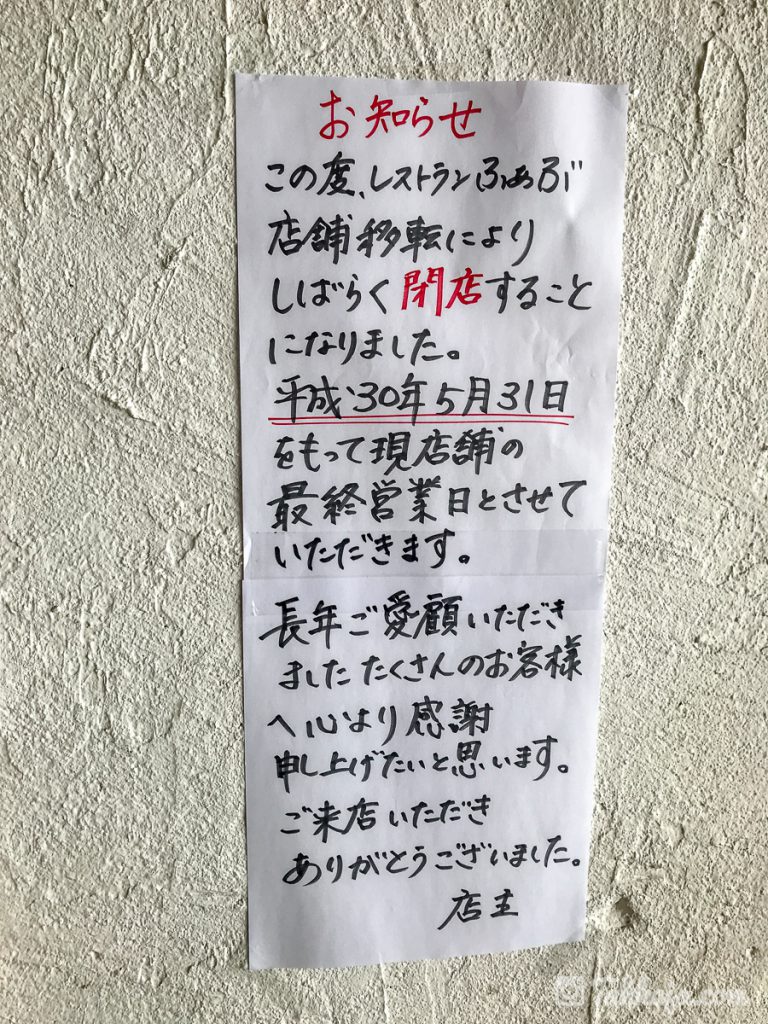 お知らせ
この度、レストランふぁぶ
店舗移転により
しばらく閉店すること
になりました。
平成30年5月31日
をもって現店舗の
最終営業日とさせて
いただきます。
長年ご愛顧いただき
ましたたくさんのお客様
へ心より感謝
申し上げたいと思います。
ご来店いただき
ありがとうございました。
店主